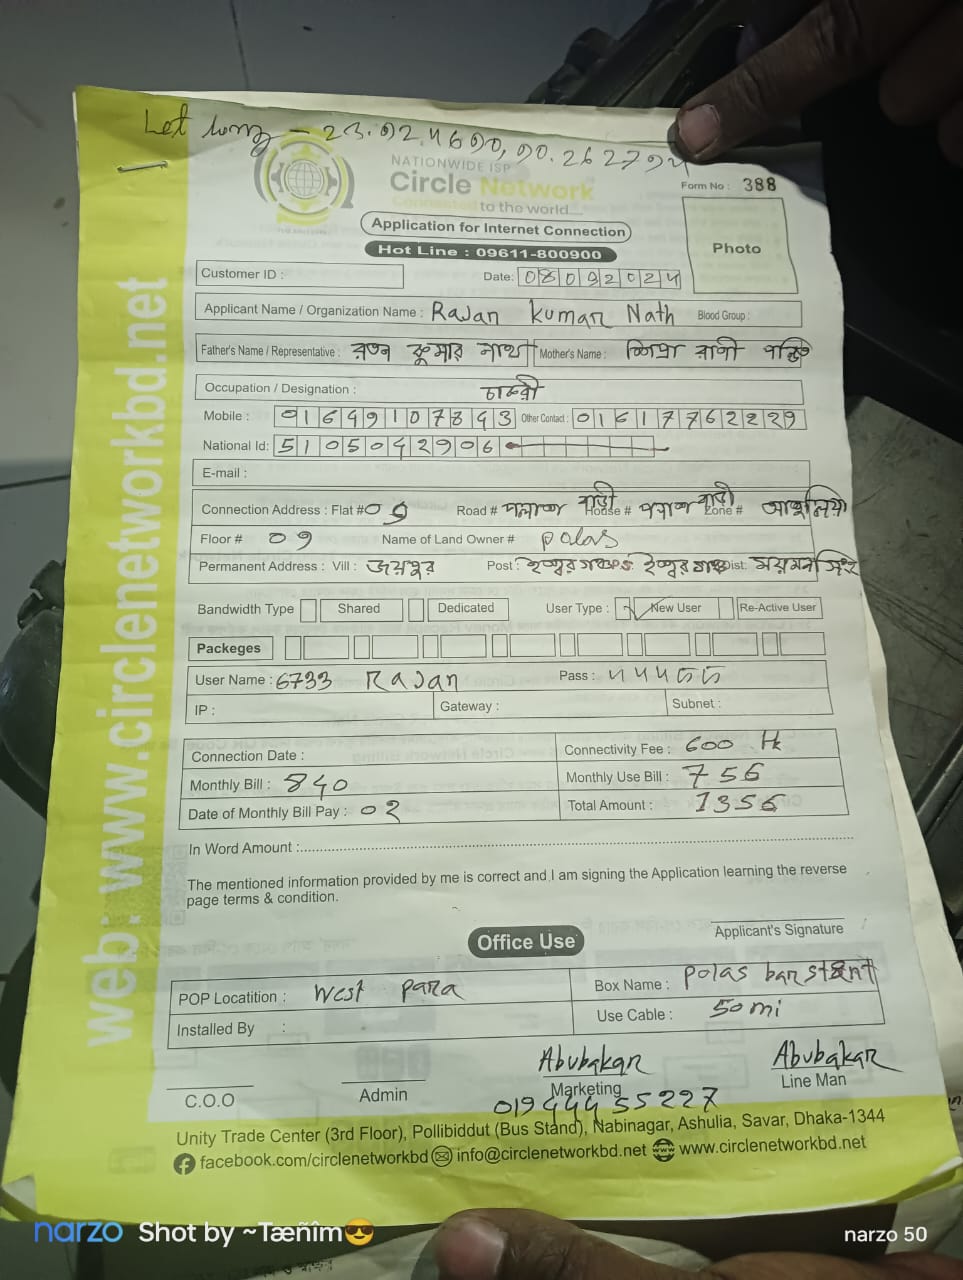 Let long - 23.92.4690, 90.262794
NATIONWIDE ISP
Circle Network
Connected to the world...
Form No : 388
Application for Internet Connection
Hot Line : 09611-800900
Photo
Customer ID :
Date: 08092024
Applicant Name / Organization Name : Rajan kumar Nath Blood Group :
Father's Name / Representative : রতন কুমার নাথ Mother's Name : শিপ্রা রানী পন্ডিত
Occupation / Designation : চাকরী
Mobile : 01649107843 Other Contact : 01617762229
National Id: 5105042906
E-mail :
Connection Address : Flat # 09 Road # পলাশ বাড়ী House # পলাশ বাড়ী Zone # আশুলিয়া
Floor # 09 Name of Land Owner # polas
Permanent Address : Vill : জয়পুর Post : ঈশ্বরগঞ্জ PS: ঈশ্বরগঞ্জ Dist: ময়মনসিংহ
Bandwidth Type Shared Dedicated User Type : New User Re-Active User
Packeges
User Name : 6733 Rajan Pass : 445566
IP : Gateway : Subnet :
Connection Date : Connectivity Fee : 600 tk
Monthly Bill : 840 Monthly Use Bill : 756
Date of Monthly Bill Pay : 02 Total Amount : 1356
In Word Amount :
The mentioned information provided by me is correct and I am signing the Application learning the reverse
page terms & condition.
Applicant's Signature
Office Use
POP Locatition : West para Box Name : polas bari stent
Installed By : Use Cable : 50 mi
Abubakar Abubakar
C.O.O Admin Marketing Line Man
01944455227
Unity Trade Center (3rd Floor), Pollibiddut (Bus Stand), Nabinagar, Ashulia, Savar, Dhaka-1344
facebook.com/circlenetworkbd info@circlenetworkbd.net www.circlenetworkbd.net
web: www.circlenetworkbd.net
narzo Shot by ~Tæñîm😎 narzo 50